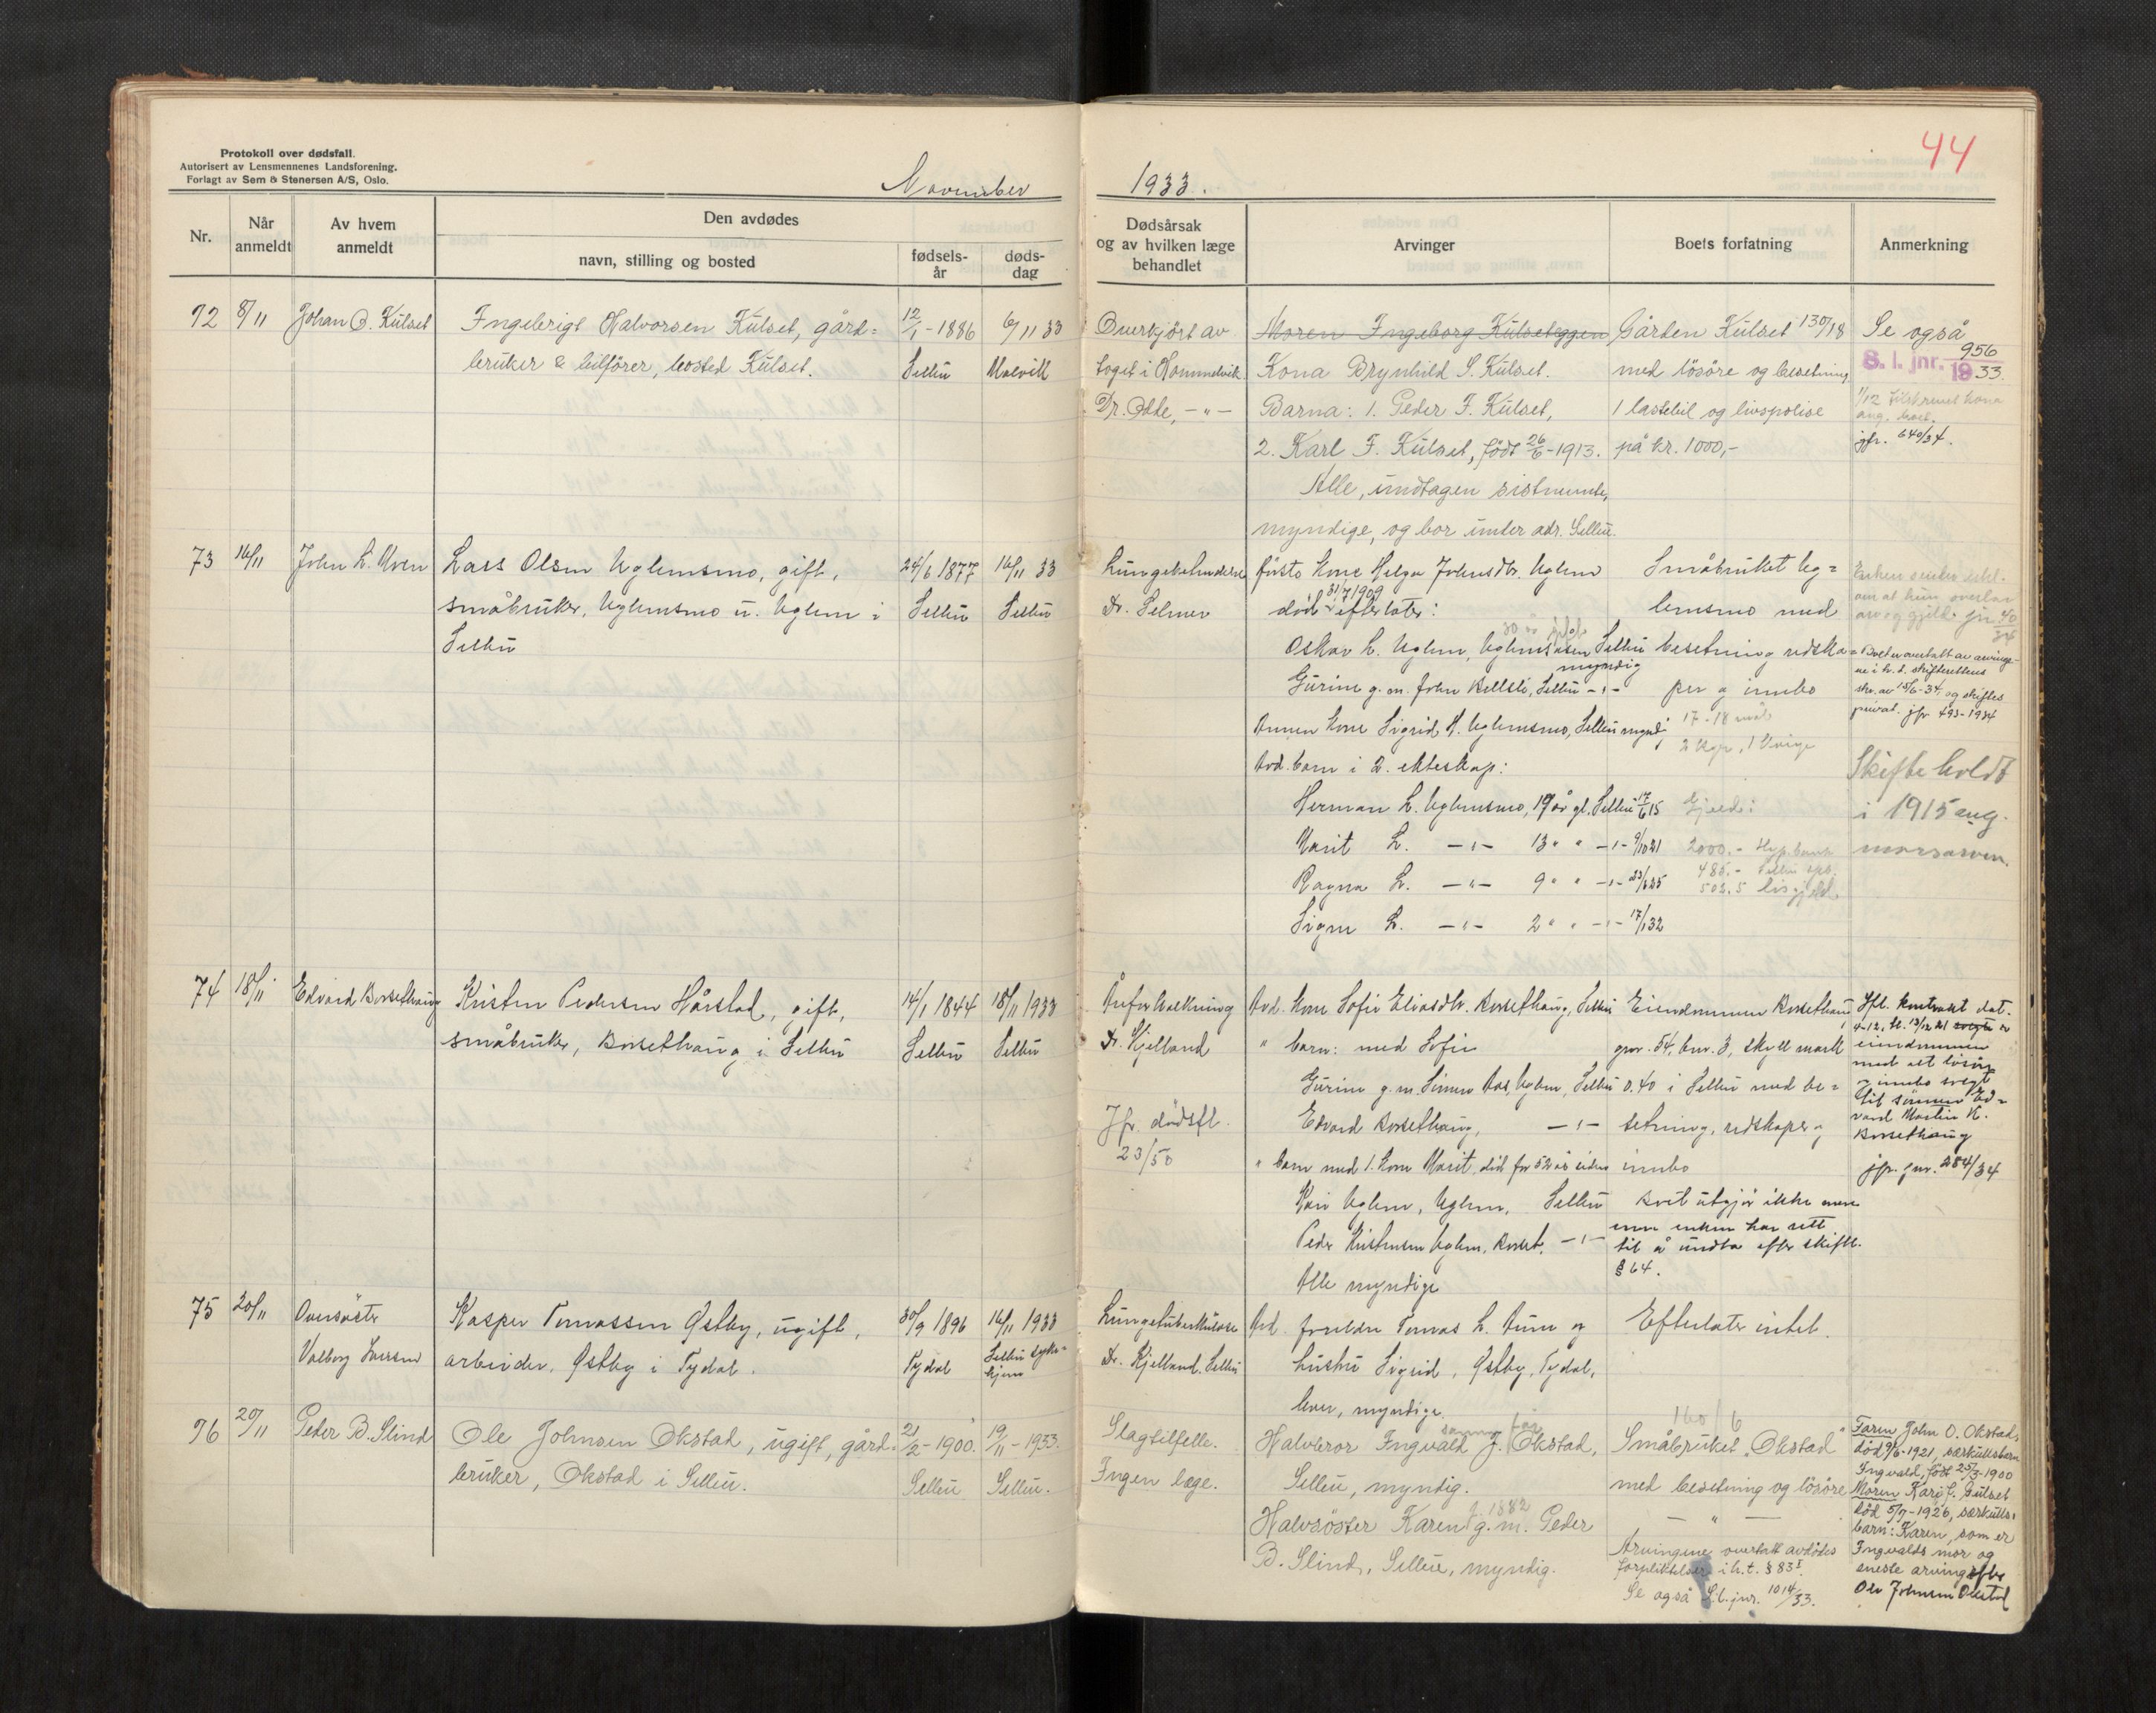 Protokoll over dødsfall.
Autorisert av Lensmennenes Landsforening.
Forlagt av Sem & Stenersen A/S, Oslo.
November
1933.
44
Nr.
Når anmeldt
Av hvem anmeldt
Den avdødes
navn, stilling og bosted
fødsels-år
døds-dag
Dødsårsak og av hvilken læge behandlet
Arvinger
Boets forfatning
Anmerkning
72
8/11
Johan O. Kulset
Ingebrigt Halvorsen Kulset, gård=
bruker & bilfører, bosted Kulset.
12/1 - 1886
Selbu
6/11 33
Malvik
Overkjørt av
toget i Hommelvik
Dr. Odde, - " -
Moren Ingeborg Kulseteggen
Kona Brynhild S. Kulset.
Barna: 1. Peder I. Kulset,
2. Karl I. Kulset, født 26/6-1913.
Alle, undtagen sistnevnte,
myndige, og bor under adr. Selbu.
Gården Kulset 130/18
med løsøre og besetning,
1 lastebil og livspolise
på kr. 1000,-
Se også
S. l. jnr. 956/1933.
1/12 tilskrevet kona
ang. boet.
jfr. 640/34.
73
16/11
John L. Moen
Lars Olsen Uglemsmo, gift,
småbruker, Uglemsmo u. Uglem i
Selbu
24/6 1877
Selbu
16/11 33
Selbu
Lungebetendelse
Dr. Selmer
første kone Helga Johnsdtr. Uglem
død 31/7 1909 efterlater:
Oskar L. Uglem, Uglemsåsen Selbu
myndig
Gurine g.m. John Kellsli, Selbu - " -
Annen kone Sigrid H. Uglemsmo, Selbu mynd.
Avd. barn i 2. ekteskap:
Herman L. Uglemsmo, 19 år gl. Selbu 17/6 15
Marit L. - " - 13 " " - " - 9/10 21
Ragna L. - " - 9 " " - " -
Signe L. - " - 2 " " - " - 17/1 32
Småbruket Ug=
lemsmo med
besetning redska=
per og innbo
17-18 mål
2 kyr, 1 kvige
Gjeld:
2000.- Hyp. bank
485.- Selbu spb.
502.5
Boet er overtatt av arvinge-
ne i h. t. skifterettens
skr. av 15/6-34, og skiftes
privat. jfr. 493-1934
Skifte holdt
i 1915 ang.
morsarven.
74
18/11
Edvard Borsethaug
Kristen Pedersen Hårstad, gift,
småbruker, Borsethaug i Selbu
14/1 1844
Selbu
18/11 1933
Selbu
Åreforkalkning
Dr. Kjelland
Jfr. dødsfl.
23/50
Avd. kone Sofie Eliasdtr. Borsethaug, Selbu
" barn: med Sofie
Gurine g.m. Simen Aas, Uglem, Selbu
Edvard Borsethaug, - " -
" barn med 1. kone Marit, død for 52 år siden
Kari Uglem, Uglem, Selbu
Peder Kristensen Uglem, Borset, - " -
Alle myndige
Eiendommen Borsethaug
gnr. 54, bnr. 3, skyld mark
0.40 i Selbu med be=
setning, redskaper og
innbo
Boet utgjør ikke mere
enn enken har rett
til å undta efter skiftl.
§ 64.
Ifl. kontrakt dat.
4-12, tl. 13/12 21 er
eiendommen
med alt løsøre
og innbo solgt
til sønnen Ed=
vard Martin K.
Borsethaug
jfr. jnr. 284/34
75
20/11
Oversøster
Valborg Iversen
Kasper Tomassen Østby, ugift,
arbeider, Østby i Tydal.
30/9 1896
Tydal
16/11 1933
Selbu syke-
hjem
Lungetuberkulose
Dr. Kjelland, Selbu
Avd. foreldre Tomas L. Aune og
hustru Sigrid, Østby, Tydal,
lever, myndige.
Efterlater intet.
76
20/11
Peder B. Slind
Ole Johnsen Okstad, ugift, gård=
bruker, Okstad i Selbu.
21/2 - 1900.
Selbu
19/11 - 1933.
Selbu.
Slagtilfelle.
Ingen læge.
samme far
Halvbror Ingvald J. Okstad,
Selbu, myndig.
f. 1882
Halvsøster Karen g.m. Peder
B. Slind, Selbu, myndig.
160/6
Småbruket "Okstad"
med besetning og løsøre
- " -
Arvingene overtatt avdødes
forpliktelser i h.t. § 83 I.
Se også S.l. jnr. 1014/33.
Faren John O. Okstad,
død 9/6-1921, særkullsbarn
Ingvald, født 25/3-1900
Moren Kari J. Gulset
død 5/7-1926, særkulls-
barn: Karen, som er
Ingvalds mor og
eneste arving efter
Ole Johnsen Okstad